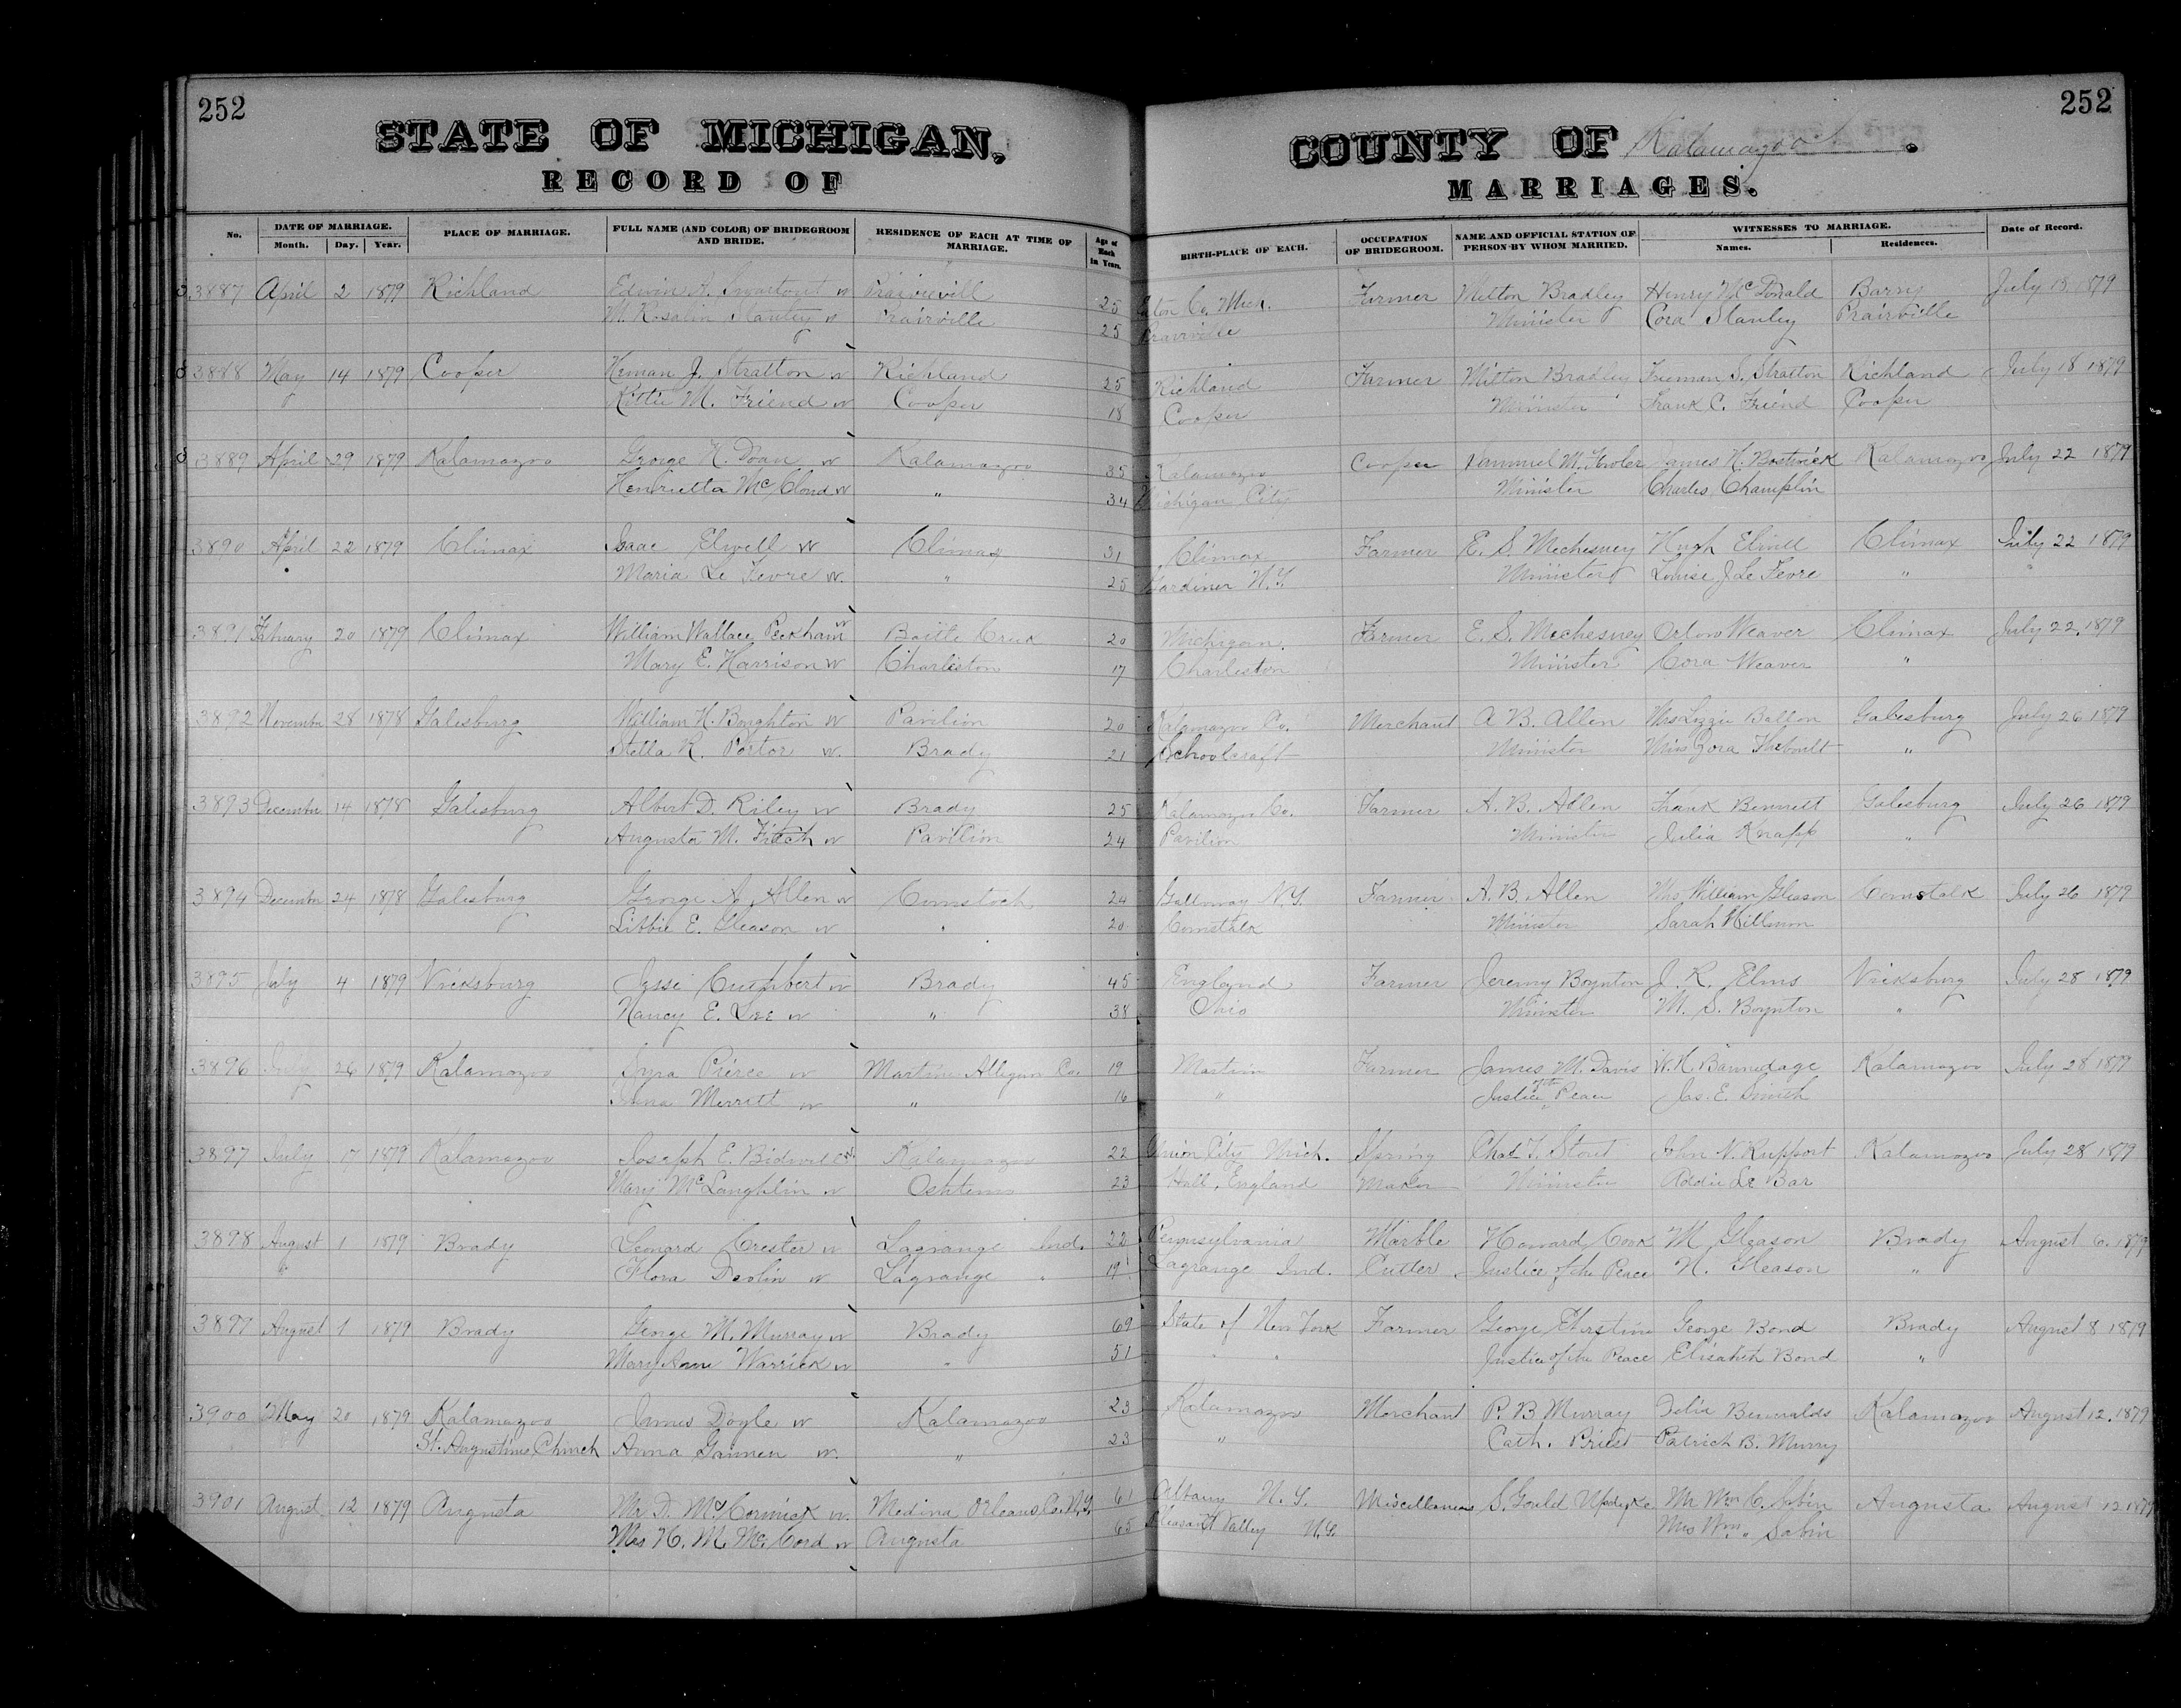 252
252
STATE OF MICHIGAN, COUNTY OF Kalamazoo.
RECORD OF MARRIAGES.
No. DATE OF MARRIAGE. Month. Day. Year. PLACE OF MARRIAGE. FULL NAME (AND COLOR) OF BRIDEGROOM AND BRIDE. RESIDENCE OF EACH AT TIME OF MARRIAGE. Age of Each in Years. BIRTH-PLACE OF EACH. OCCUPATION OF BRIDEGROOM. NAME AND OFFICIAL STATION OF PERSON BY WHOM MARRIED. WITNESSES TO MARRIAGE. Names. Residences. Date of Record.
3887 April 2 1879 Richland Edwin A. Swartout w Prairievill 25 Eaton Co. Mich. Farmer Milton Bradley Henry McDonald Barry July 18 1879
M. Rosalin Stanley w Prairville 25 Prairville Minister Cora Stanley Prairville
3888 May 14 1879 Cooper Heman J. Stratton w Richland 25 Richland Farmer Milton Bradley Freeman S. Stratton Richland July 18 1879
Kittie M. Friend w Cooper 18 Cooper Minister Frank C. Friend Cooper
3889 April 29 1879 Kalamazoo George H. Doan w Kalamazoo 35 Kalamazoo Cooper Sammuel M. Fowler James H. Bostwick Kalamazoo July 22 1879
Henrietta McCloud w " 34 Michigan City Minister Charles Champlin
3890 April 22 1879 Climax Isaac Elwell w Climax 31 Climax Farmer E. S. Mechesney Hugh Elwell Climax July 22 1879
Maria Le Fevre w. " 25 Gardiner N.Y. Minister Louise J Le Fevre "
3891 Febuary 20 1879 Climax William Wallace Peckham w Battle Creek 20 Michigan. Farmer E. S. Mechesney Orlow Weaver Climax July 22, 1879
Mary E. Harrison w Charleston 17 Charleston Minister Cora Weaver "
3892 November 28 1878 Galesburg William H. Boughton w Pavilion 20 Kalamazoo Co. Merchant A B. Allen Mrs Lizzie Ballon Galesburg July 26 1879
Stella R. Portor w. Brady 21 Schoolcraft Minister Miss Zora "
3893 December 14 1878 Galesburg Albert D. Riley w Brady 25 Kalamazoo Co. Farmer A. B. Allen Frank Bennett Galesburg July 26 1879
Augusta M. Fitch w Pavilion 24 Pavilion Minister Julia Knapp "
3894 December 24 1878 Galesburg George A. Allen w Comstock 24 Galloway N.Y. Farmer A. B. Allen Mrs William Gleason Comstalk July 26 1879
Libbie E. Gleason w " 20 Comstalk Minister Sarah Willson
3895 July 4 1879 Vicksburg Jesse Cuthbert w Brady 45 England Farmer Jeremy Boynton J. R. Elms Vicksburg July 28 1879
Nancy E. Lee w " 38 Ohio Minister M. S. Boynton "
3896 July 26 1879 Kalamazoo Pierce w Martin Allegan Co. 19 Martin Farmer James M. Davis W. H. Kalamazoo July 28 1879
Merritt w " 16 " Justice The Peace Jas. E. Smith
3897 July 17 1879 Kalamazoo Joseph E. Bidwell w. Kalamazoo 22 Union City Mich. Spring Chas T. Stout John N. Rupport Kalamazoo July 28 1879
Mary McLaughlin w Oshtemo 23 Hull, England Maker Minister Addie Le Bar
3898 August 1 1879 Brady Leonard Crester w Lagrange Ind. 22 Pennsylvania Marble Howard Cook M Gleason Brady August 6. 1879
" Flora Devlin w Lagrange " 19 Lagrange Ind. Cutter Justice of the Peace N. Gleason "
3899 August 1 1879 Brady George M. Murray w Brady 69 State of New York Farmer George George Bond Brady August 8 1879
Mary Ann Warrick w " 51 " " Justice of the Peace Elisabeth Bond "
3900 May 20 1879 Kalamazoo James Doyle w Kalamazoo 23 Kalamazoo Merchant P. B. Murray Kalamazoo August 12. 1879
St. Augustine Church Anna Gannen w. " 23 " Cath. Priest Patrick B. Murry
3901 August 12 1879 Augusta Mr D. McCormick w. Medina Orleans Co. N.Y. 61 Albany N.Y. Miscellaneous S. Gould Updyke Mr Wm C. Sabin Augusta August 12 1879
Mrs H. M. Mc. Cord w Augusta 65 Pleasant Valley N.Y. Mrs Wm. " Sabin